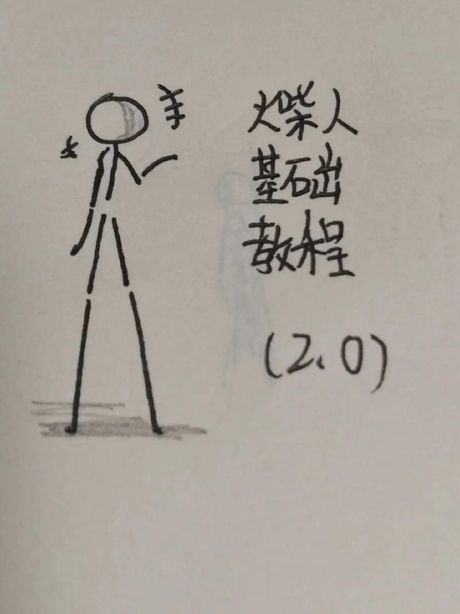 火柴人
基础
教程
(2.0)